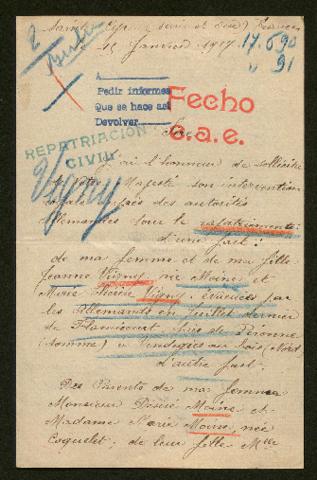 15 Janvier 1917
17.690
" 91
A
Pedir informes
Que se hace así
Devolver
Fecho
e.a.e.
REPATRIACION
CIVIL
Vigny
Sire
J'ai l'honneur de solliciter
Majesté son intervention
des autorités
allemandes pour le rapatriement :
d'une part :
de ma femme et de ma fille
Jeanne Vigny née Moine et
Marie Vigny, évacuées par
les Allemands en Juillet dernier
de Flaucourt près de Péronne
(Somme) à Vendegies au Bois (Nord
d'autre part.
Des Parents de ma femme
Monsieur Désiré Moine et
Madame Marie Moine, née
Coquelet, de leur fille Mlle